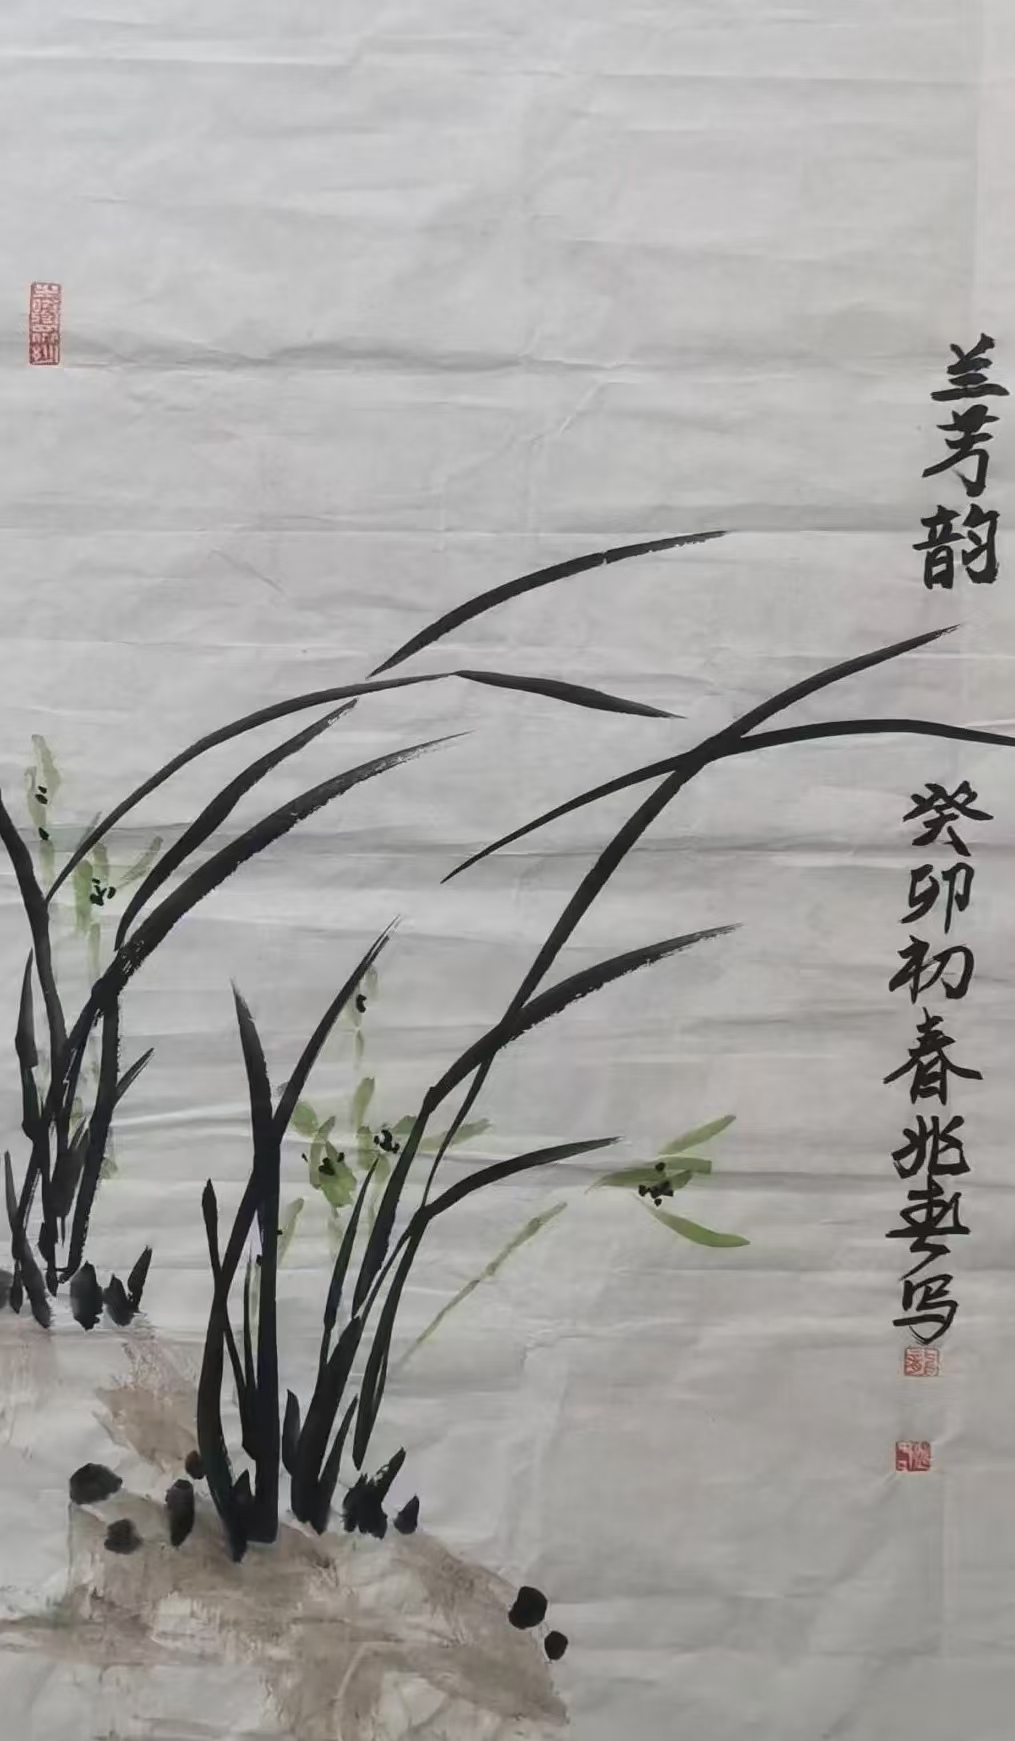 兰芳韵
癸卯初春兆春写